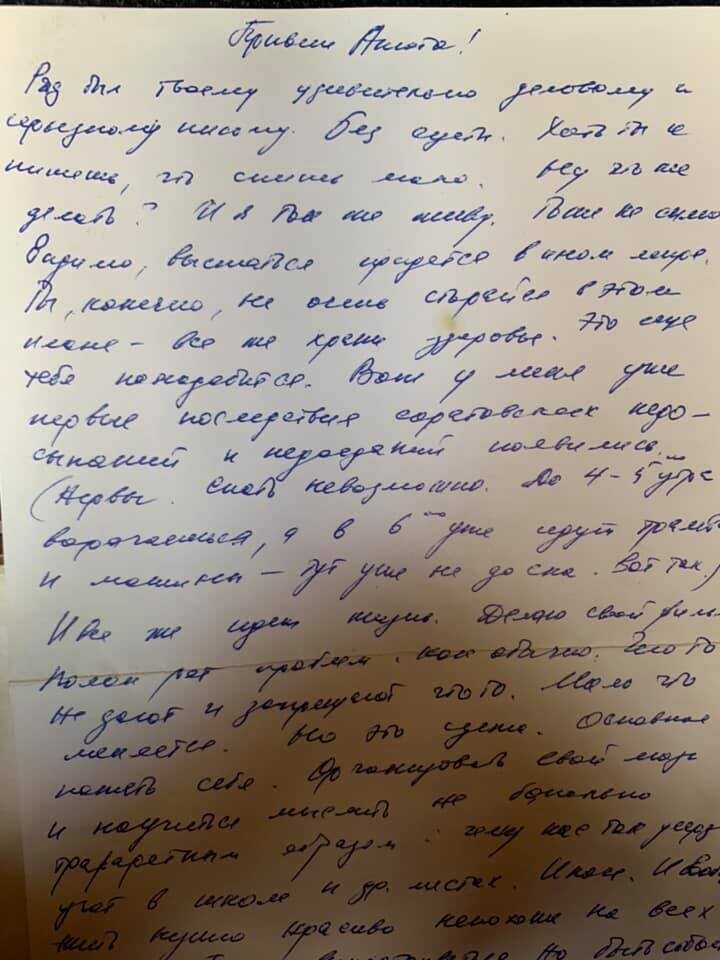 Привет Анюта!
Рад был твоему удивительно деловому и
серьезному письму. Без суеты. Хоть ты и
пишешь, что спишь мало. Ну что же
делать? И я так же живу. Тоже не сплю
Видимо, выспаться придется в ином мире.
Ты, конечно, не очень старайся в этом
плане – все же храни здоровье. Это еще
тебе понадобится. Вот у меня уже
первые последствия саратовских недо-
сыпаний и недоеданий появились.
(Нервы. Спать невозможно. До 4-5 утра
ворочаешься, а в 6 уже идут трамв
и машины – тут уже не до сна. Вот так)
И все же идет жизнь. Делаю свой филь
Полон рот проблем. Как обычно. Что то
не дают и запрещают что то. Мало что
меняется. Но это суета. Основное
понять себя. Организовать свой мир
и научиться мыслить не банально
трафаретным образом: чему нас так усерд
учат в школе и др. местах. Иначе. И
жить нужно красиво непохоже на всех
но быть собой